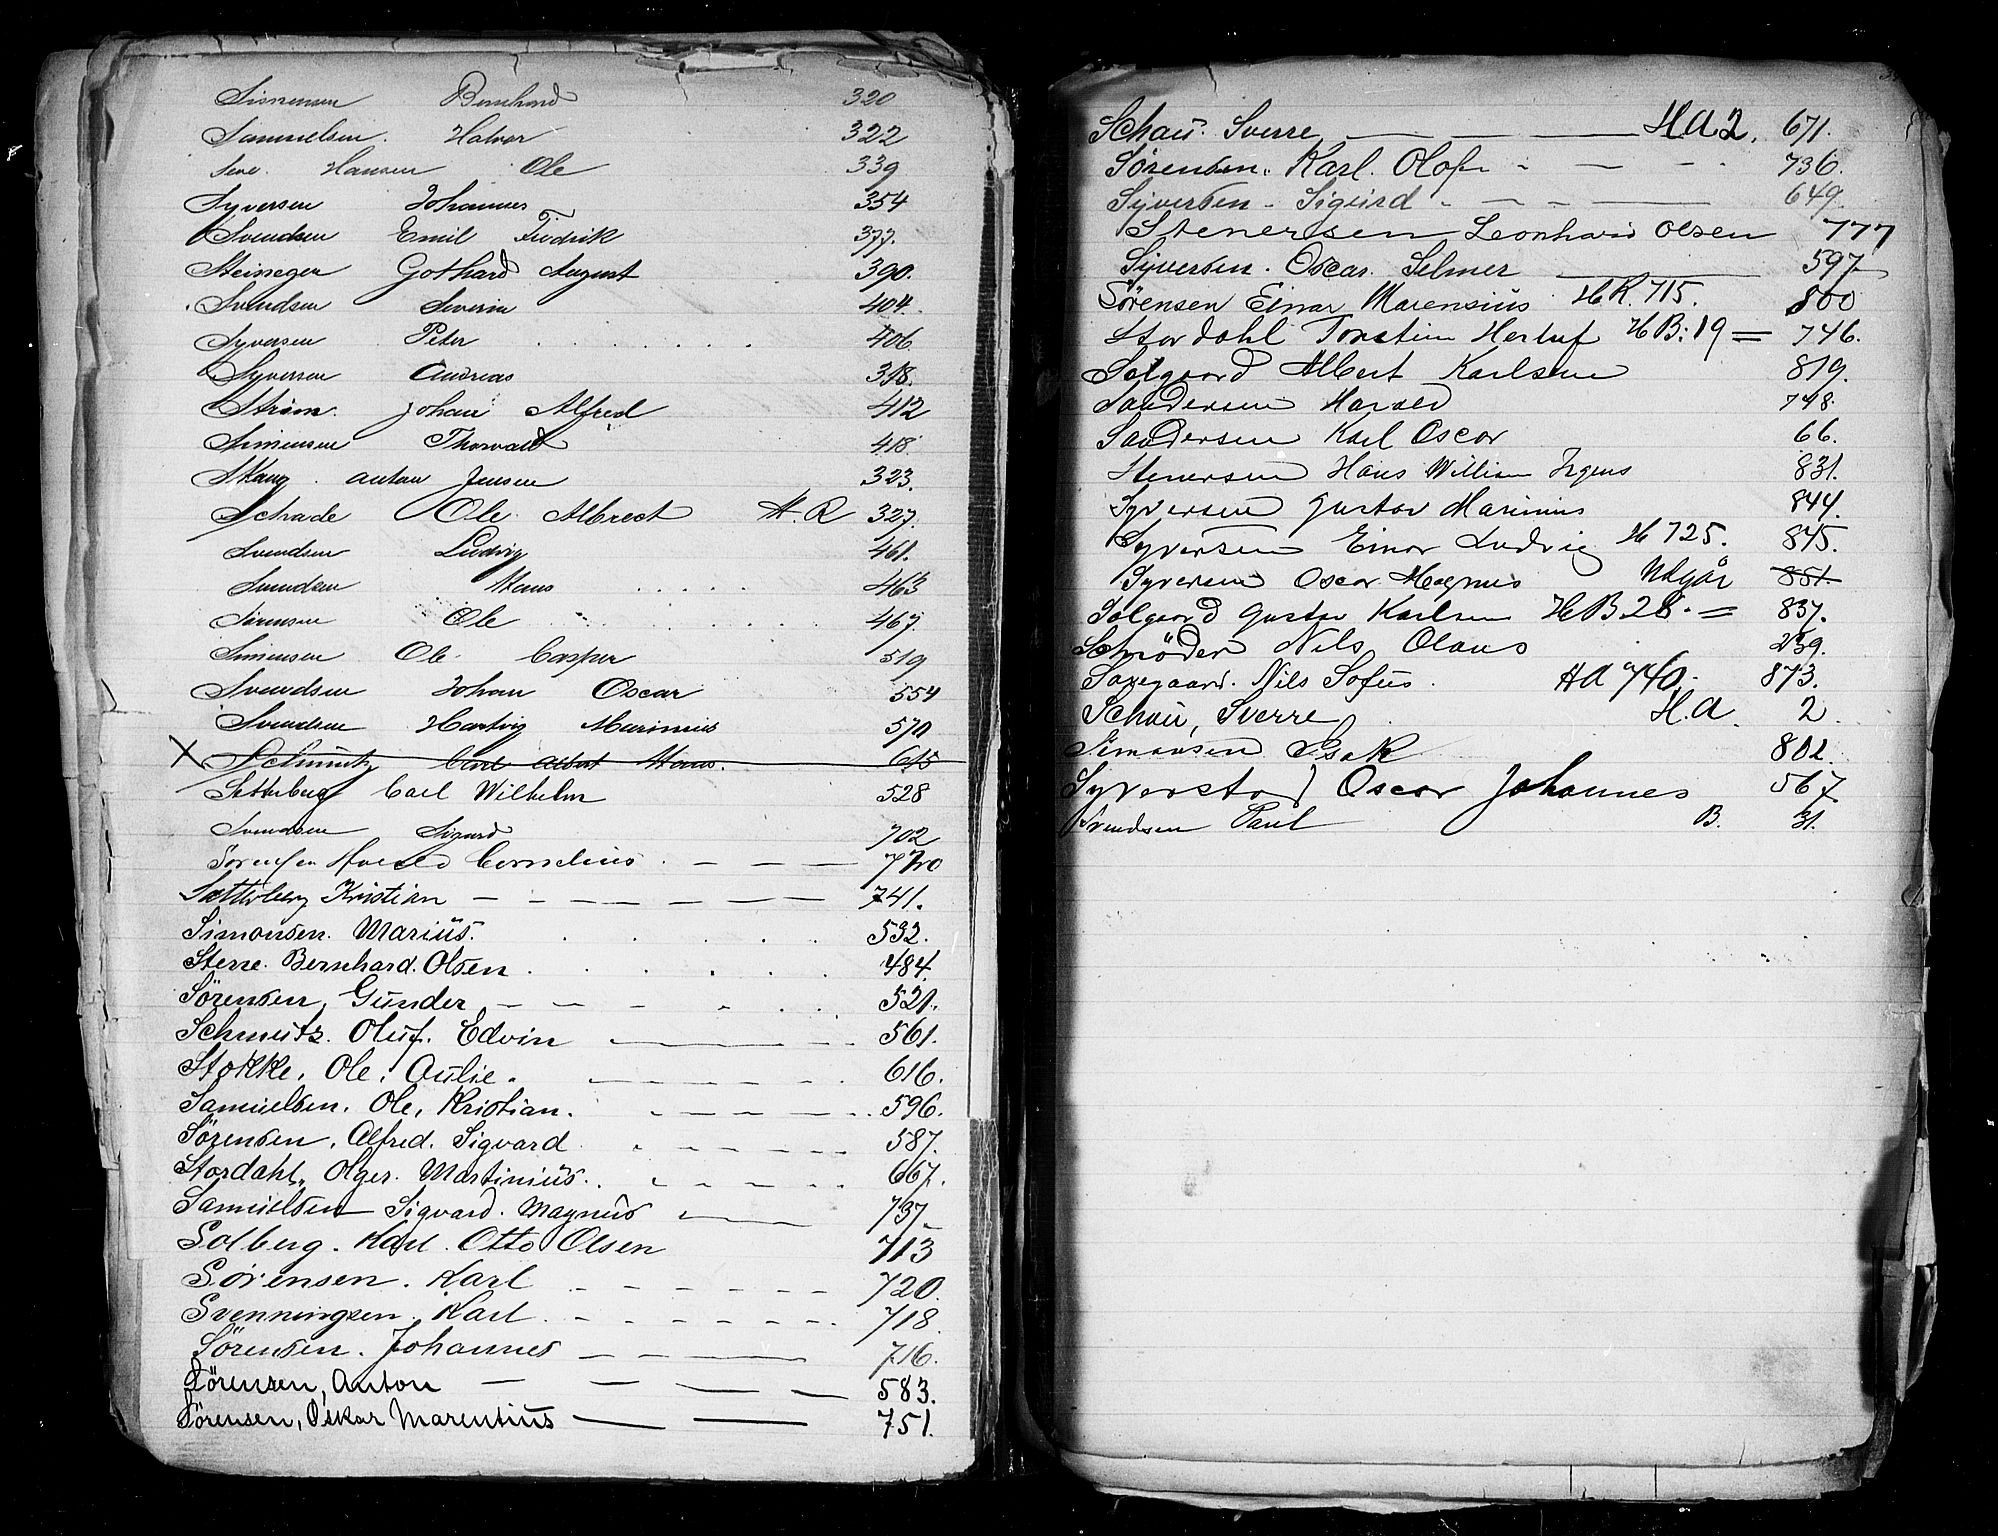 Simensen Bernhard 320
Samuelsen. Halvor 322
Hansen Ole 339
Syversen Johannes 354
Svendsen Emil Fredrik 377.
Steineger Gothard August 390.
Svendsen Severin 404.
Syversen Peter 406
Syversen Andreas 318.
Strøm. Johan Alfred 412
Simensen Thorvald 418.
Skaug. Anton Jensen 323.
Schade Ole Albrect H. R 327.
Svendsen Ludvig 461.
Svendsen Hans 463
Sørensen Ole 467.
Simensen Ole Casper 519
Svendsen Johan Oscar 554
Svendsen Hartvig Marinius 570
X Schmutz Carl Albert Hans. 615
Sætterberg Carl Wilhelm 528
Svendsen Sigurd 702
Sørensen Harald Cornelius. 770
Sætterberg Kristian 741.
Simonsen. Marius. 532.
Sterre. Bernhard. Olsen 484.
Sørensen, Gunder 521.
Schmutz. Oluf. Edvin 561.
Stokke. Ole. Aulie. 616.
Samuelsen. Ole, Kristian. 596.
Sørensen. Alfred. Sigvard 587.
Stordahl, Olger. Martinius. 667.
Samuelsen Sigvard. Magnus 737.
Solberg. Karl. Otto Olsen 713
Sørensen. Karl 720.
Svenningsen. Karl 718.
Sørensen. Johannes 716.
Sørensen, Anton 583.
Sørensen, Oskar Marentius 751.
Schau. Sverre H A 2. 671.
Sørensen. Karl. Olof 736.
Syversen - Sigurd 649.
Stenersen Leonhard Olsen 777
Syversen. Oscar. Selmer 597
Sørensen Einar Marensius H R. 715. 800
Stordahl Torstein Herluf H B: 19 = 746.
Solgaard Albert Karlsen 819.
Sandersen Harald 748.
Sandersen Karl Oscar 66.
Stenersen Hans William Irgens 831.
Syversen Gustav Marinius 844.
Syversen Einar Ludvig H 725. 845.
Syversen Oscar Magnus Udgår 851.
Solgaard Gustav Karlsen H B 28. = 837.
Schrøder Nils Olaus 239.
Saxegaard. Nils Sofus. H A 740. 873.
Schau, Sverre H. A. 2.
Simonsen Isak 802.
Syverstad Oscar Johannes 567.
Svendsen Paul B. 31.